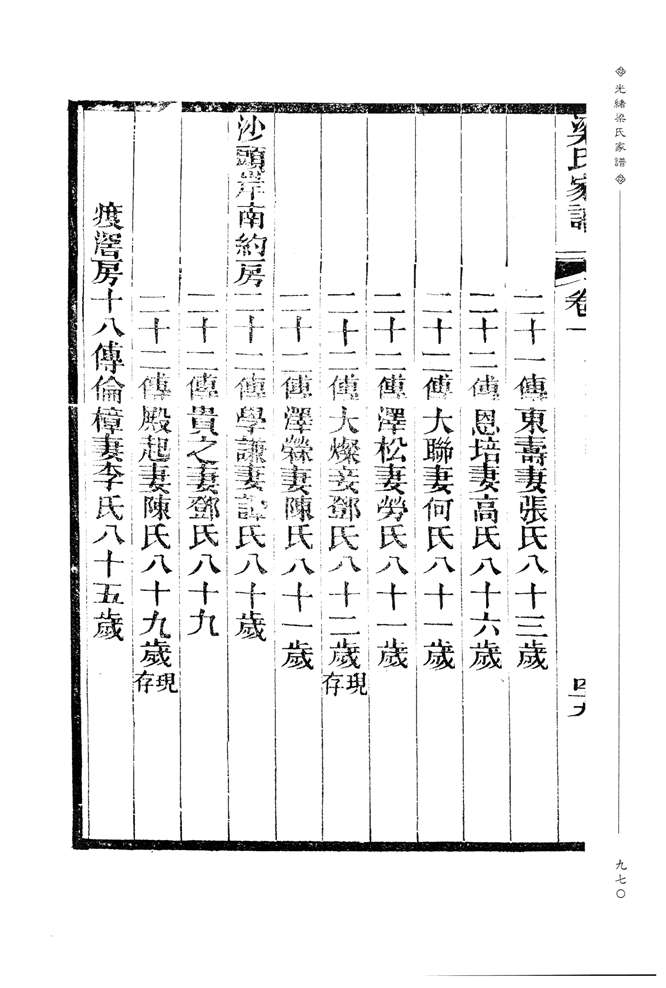 光緒梁氏家譜
九七〇
梁氏家譜 卷一 四九
二十一傳東壽妻張氏八十三歲
二十二傳恩培妻高氏八十六歲
二十二傳大聯妻何氏八十一歲
二十一傳澤松妻勞氏八十一歲
二十二傳大燦妾鄧氏八十二歲現存
二十一傳澤榮妻陳氏八十一歲
沙頭岸南約房二十一傳學謙妻譚氏八十歲
二十二傳貴之妻鄧氏八十九
二十二傳殿起妻陳氏八十九歲現存
房十八傳倫樟妻李氏八十五歲